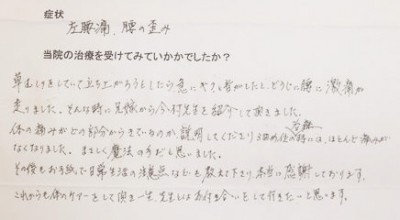 症状
左腰痛、腰の歪み
当院の治療を受けてみていかがでしたか?
草むしりをしていて立ち上がろうとしたら急に
腰に激痛が
走りました。そんな時に兄嫁から今村先生を紹介して頂きました。
体の痛みがどの部分からきているのか、説明してくださり3回の治療後には、ほとんど痛みが
なくなりました。まさしく魔法の手だと思いました。
その後もお手紙で日常生活の注意点なども教えて下さり、本当に感謝しております。
これからも体のケアーをして頂き一生、先生とはお付き合いをして行きたいと思います。